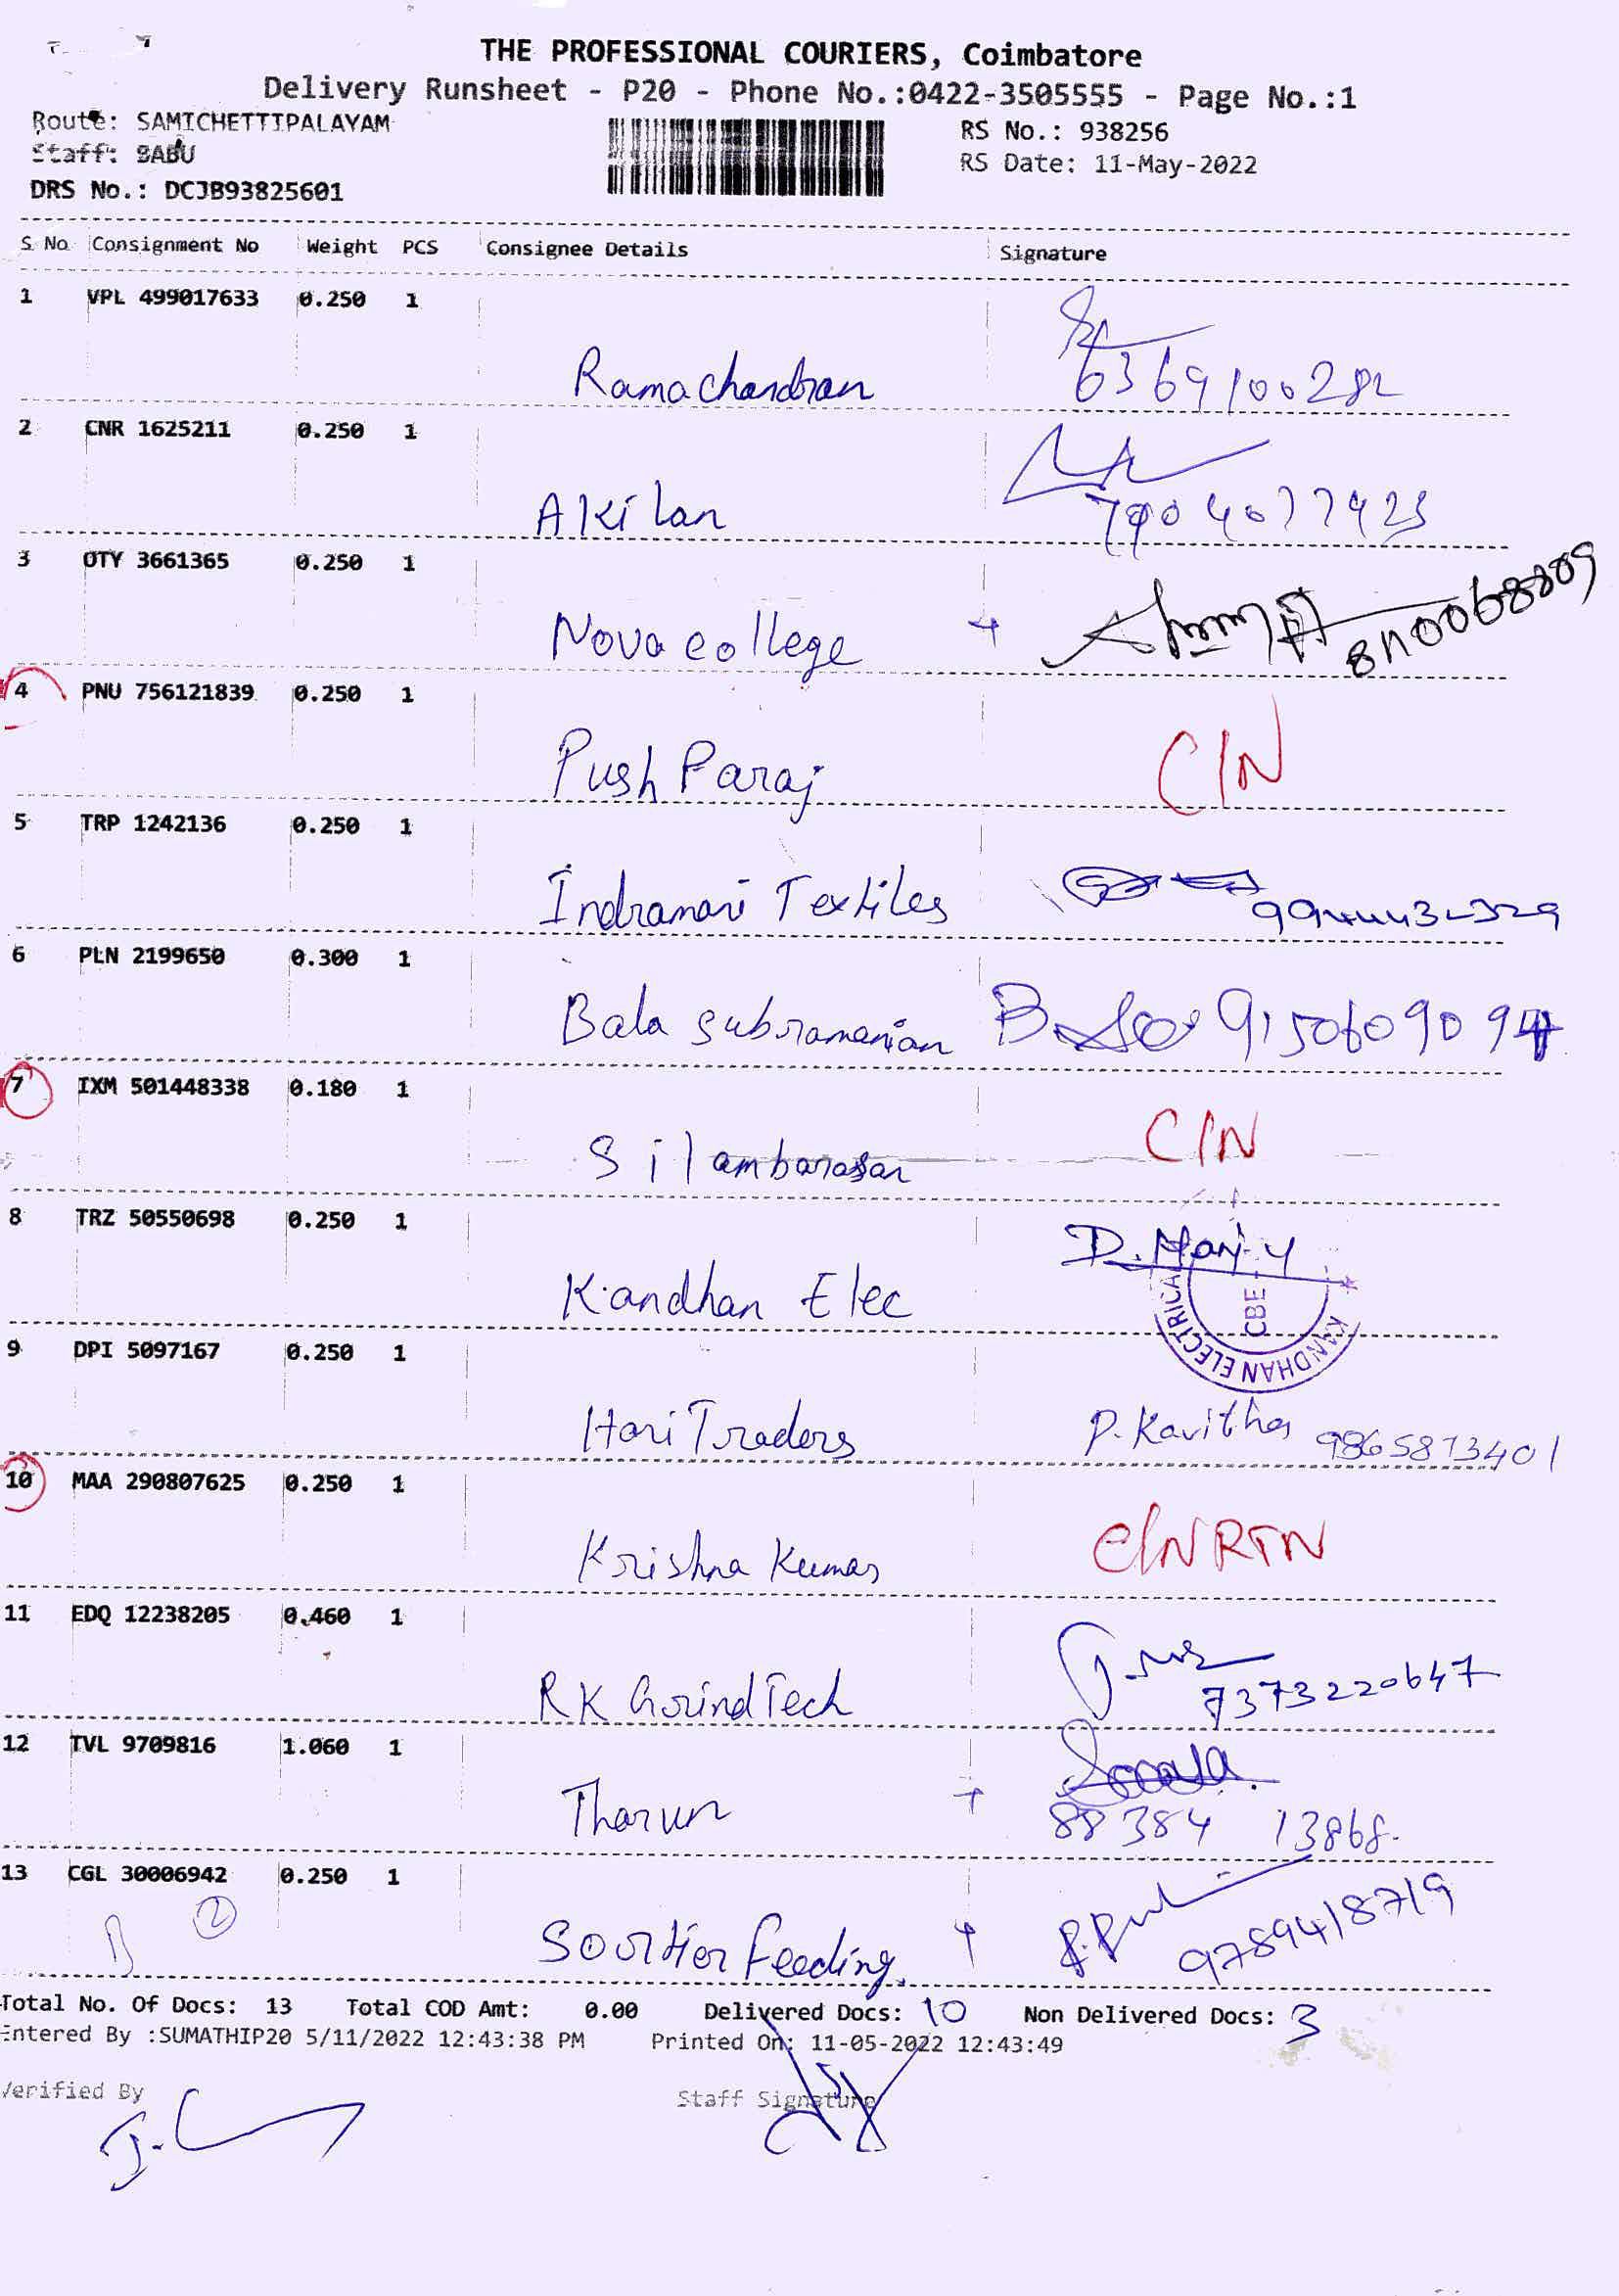 THE PROFESSIONAL COURIERS, Coimbatore
Delivery Runsheet - P20 - Phone No.:0422-3505555 - Page No.:1
Route: SAMICHETTIPALAYAM
RS No.: 938256
Staff: BABU
RS Date: 11-May-2022
DRS No.: DCJB93825601
S No Consignment No Weight PCS Consignee Details Signature
1 VPL 499017633 0.250 1
Ramachandran 6369100282
2 CNR 1625211 0.250 1
Akilan 7904077423
3 OTY 3661365 0.250 1
Nova college
4 PNU 756121839 0.250 1
PushParaj C/N
5 TRP 1242136 0.250 1
Indramani Textiles
6 PLN 2199650 0.300 1
Bala subramanian
7 IXM 501448338 0.180 1
Silambarasan C/N
8 TRZ 50550698 0.250 1
Kandhan Elec
CBE
KANDHAN ELECTRICA
9 DPI 5097167 0.250 1
Hari Traders P. Kavitha 9865873401
10 MAA 290807625 0.250 1
Krishna Kumar C/N RTN
11 EDQ 12238205 0.460 1
RK GrindTech 7373220647
12 TVL 9709816 1.060 1
Tharun 88384 13868.
13 CGL 30006942 0.250 1
2
Soortier Feeding. 9789418719
Total No. Of Docs: 13 Total COD Amt: 0.00 Delivered Docs: 10 Non Delivered Docs: 3
Entered By :SUMATHIP20 5/11/2022 12:43:38 PM Printed On: 11-05-2022 12:43:49
Verified By Staff Signature